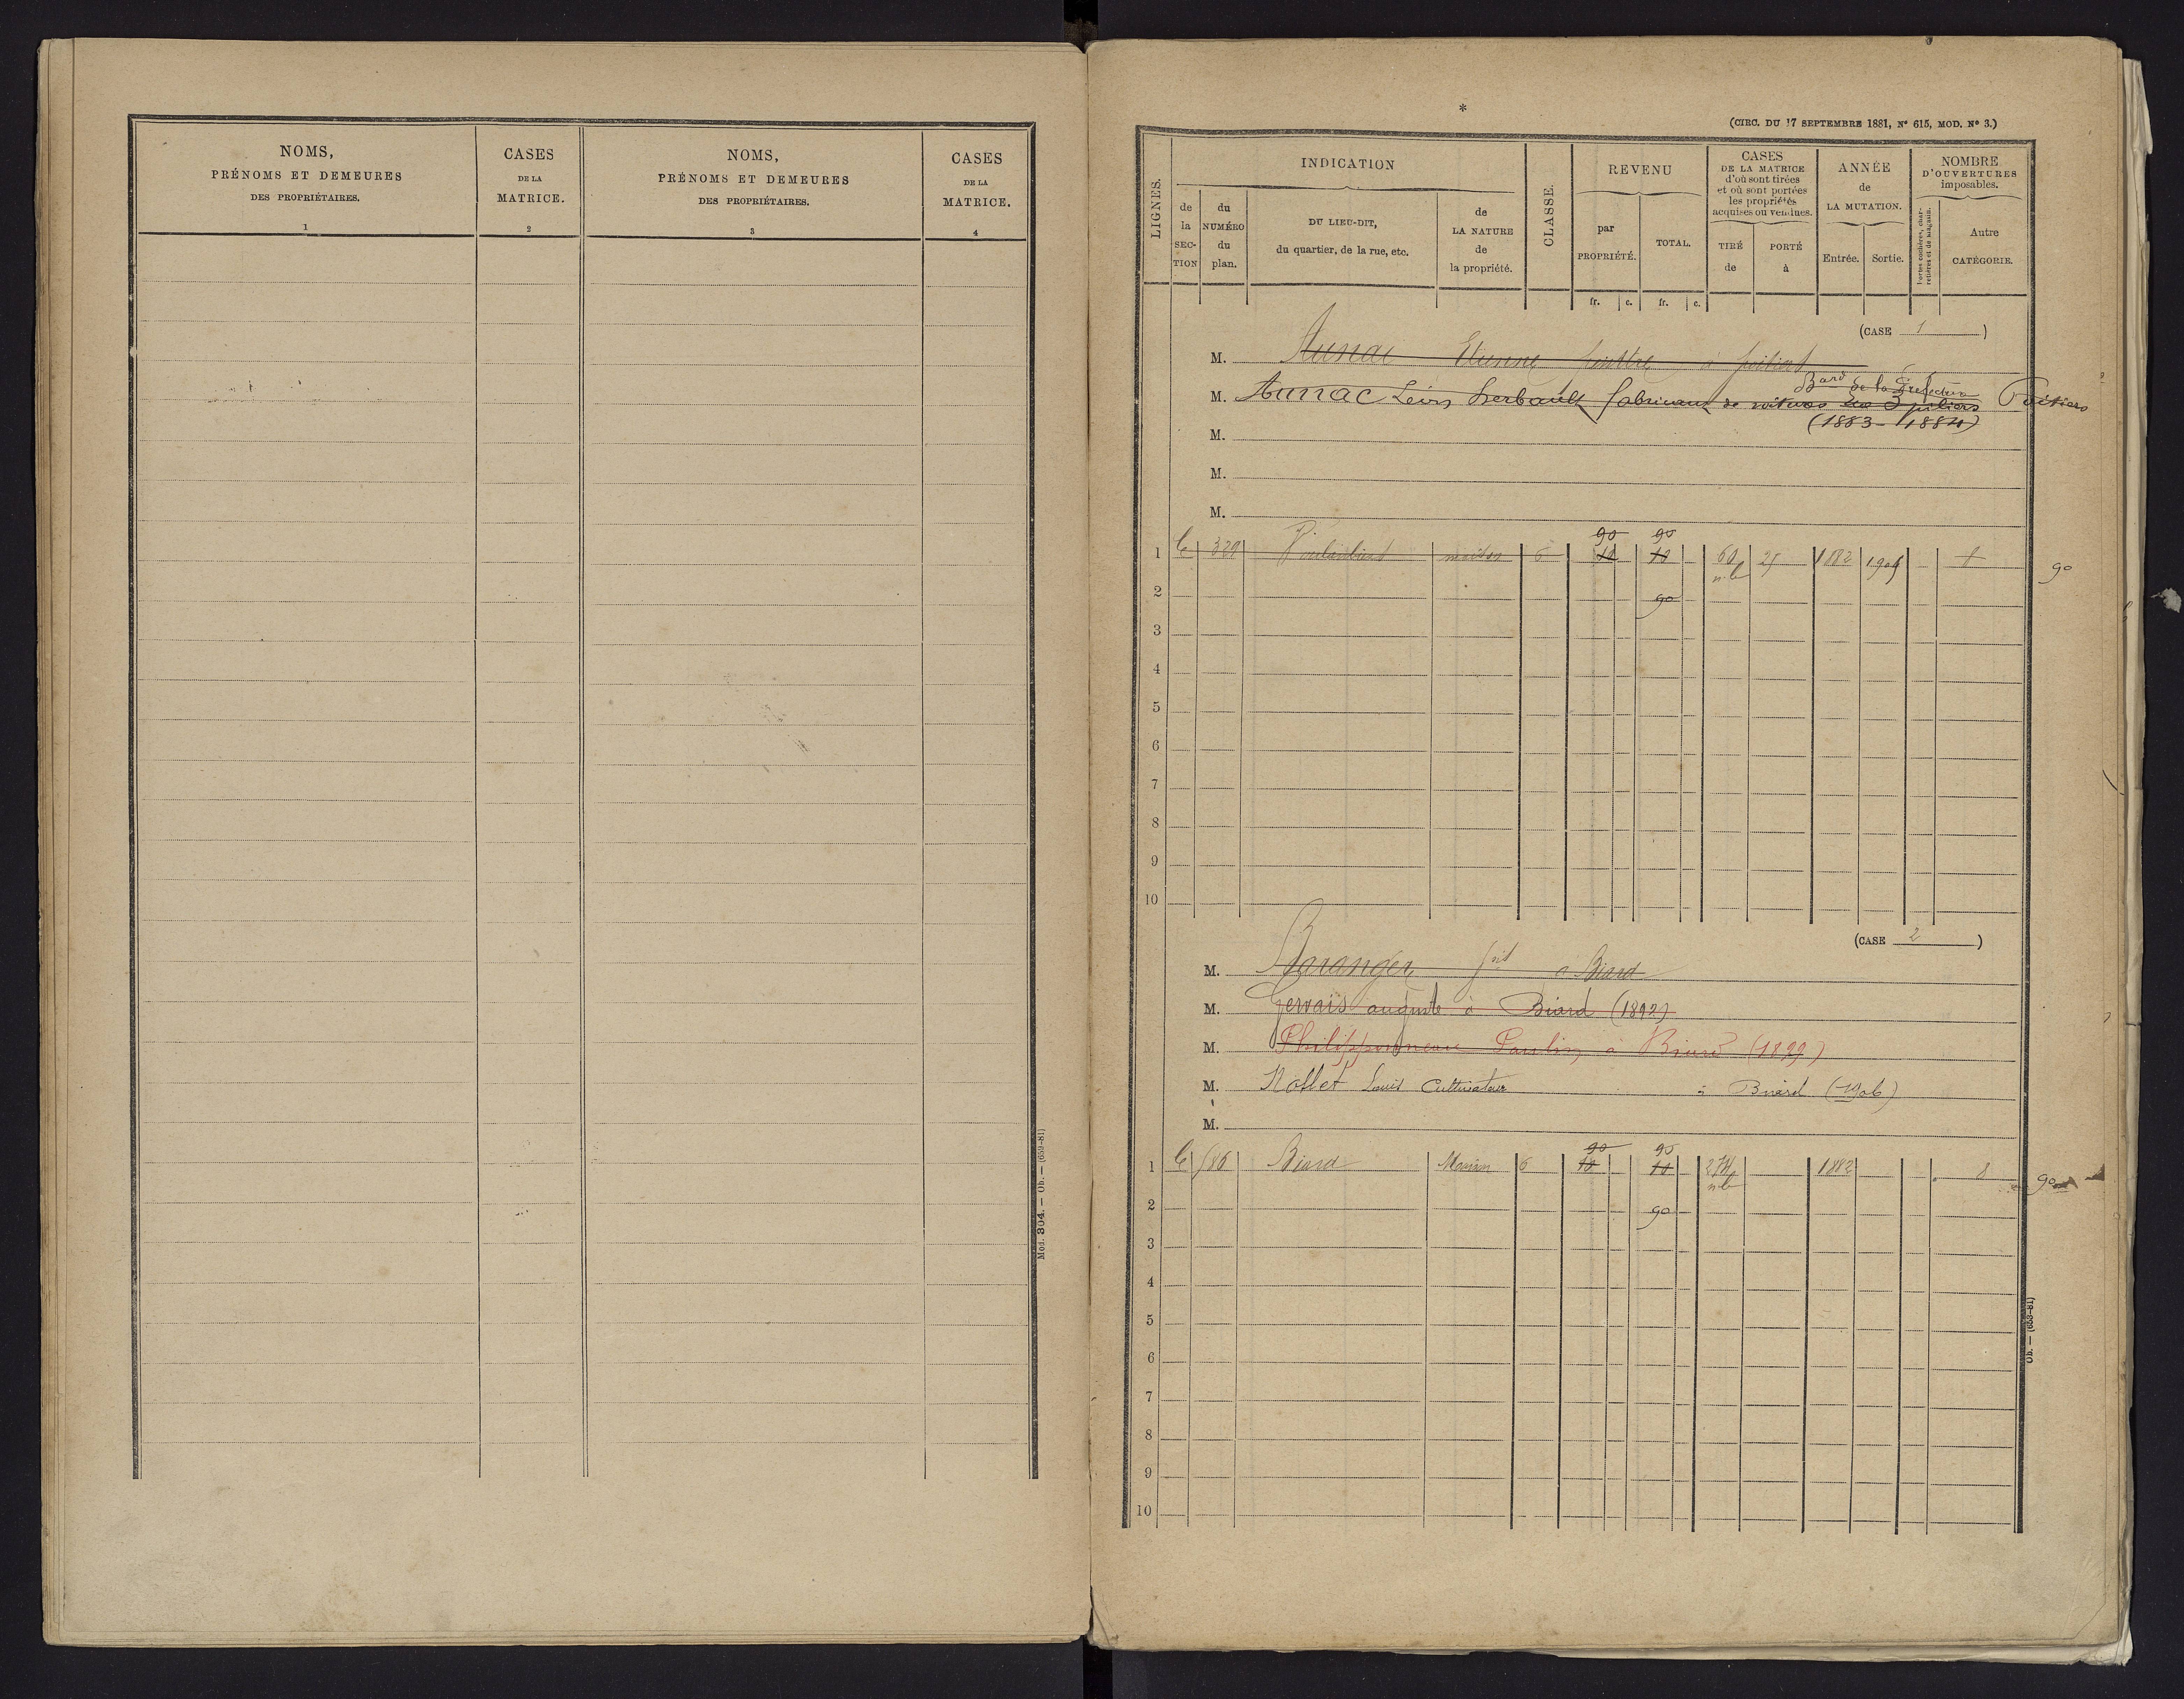 NOMS,
PRÉNOMS ET DEMEURES
DES PROPRIÉTAIRES.
1
CASES
DE LA
MATRICE.
2
NOMS,
PRÉNOMS ET DEMEURES
DES PROPRIÉTAIRES.
3
CASES
DE LA
MATRICE.
4
Mod. 304. — Ob. — (659-81)
*
(CIRC. DU 17 SEPTEMBRE 1881, N° 615, MOD. N° 3.)
LIGNES.
INDICATION
de la SECTION
du NUMÉRO du plan.
DU LIEU-DIT,
du quartier, de la rue, etc.
de LA NATURE de la propriété.
CLASSE.
REVENU
par PROPRIÉTÉ.
TOTAL.
CASES
DE LA MATRICE
d'où sont tirées
et où sont portées
les propriétés
acquises ou vendues.
TIRÉ de
PORTÉ à
ANNÉE
de
LA MUTATION.
Entrée.
Sortie.
NOMBRE
D'OUVERTURES
imposables.
Portes cochères, charretières et de magasin.
Autre
CATÉGORIE.
fr. c. fr. c.
(CASE 1)
M. Aunac Etienne à Poitiers
M. Aunac Léon Herbault fabricant de voitures des 3 piliers Poitiers
Bard de la Préfecture
(1883-1884)
M.
M.
M.
90 90
1 C 329 maison 6 10 10 60 25 1882 1905 8 90
n.b
2 90
3
4
5
6
7
8
9
10
(CASE 2)
M. Baranger à Biard
M. Gervais auguste à Biard (1892)
M. Philipponneau Paulin à Biard (1899)
M. Nollet Louis Cultivateur à Biard (1906)
M.
90 90
1 C 586 Biard Maison 6 10 10 274 1882 8 90
n.b
2 90
3
4
5
6
7
8
9
10
Ob. — (659-81)